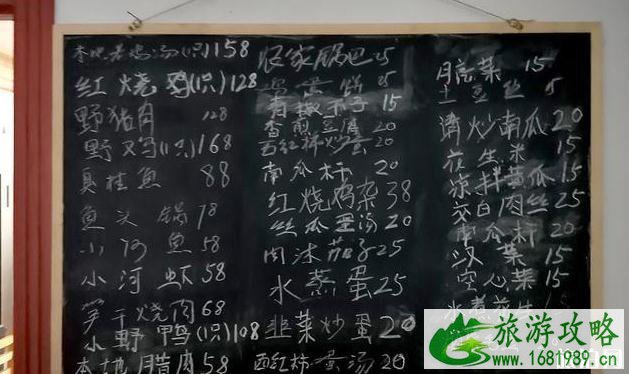 本地老鸡汤(只)158
红烧鸡(只)128
野猪肉 128
野鸡(只)168
臭桂鱼 88
鱼头锅 78
小河鱼 58
小河虾 58
笋干烧肉 68
小野鸭(只)108
本地腊肉 58
农家锅巴 25
鸡蛋饼
青椒干子 15
香煎豆腐 20
西红柿炒蛋 20
南瓜杆 20
红烧鸡杂 38
丝瓜蛋汤 20
肉沫茄子 25
水蒸蛋 25
韭菜炒蛋 20
西红柿蛋汤 20
15
土豆丝
清炒南瓜 20
花生米 15
凉拌黄瓜 15
茭白肉丝 25
南瓜杆 20
汉菜 15
空心菜 15
水煮花生
旅游攻略
www.1681989.cn